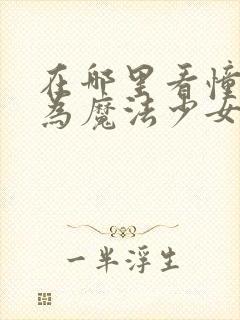 在哪里看憧
為魔法少女
一半浮生